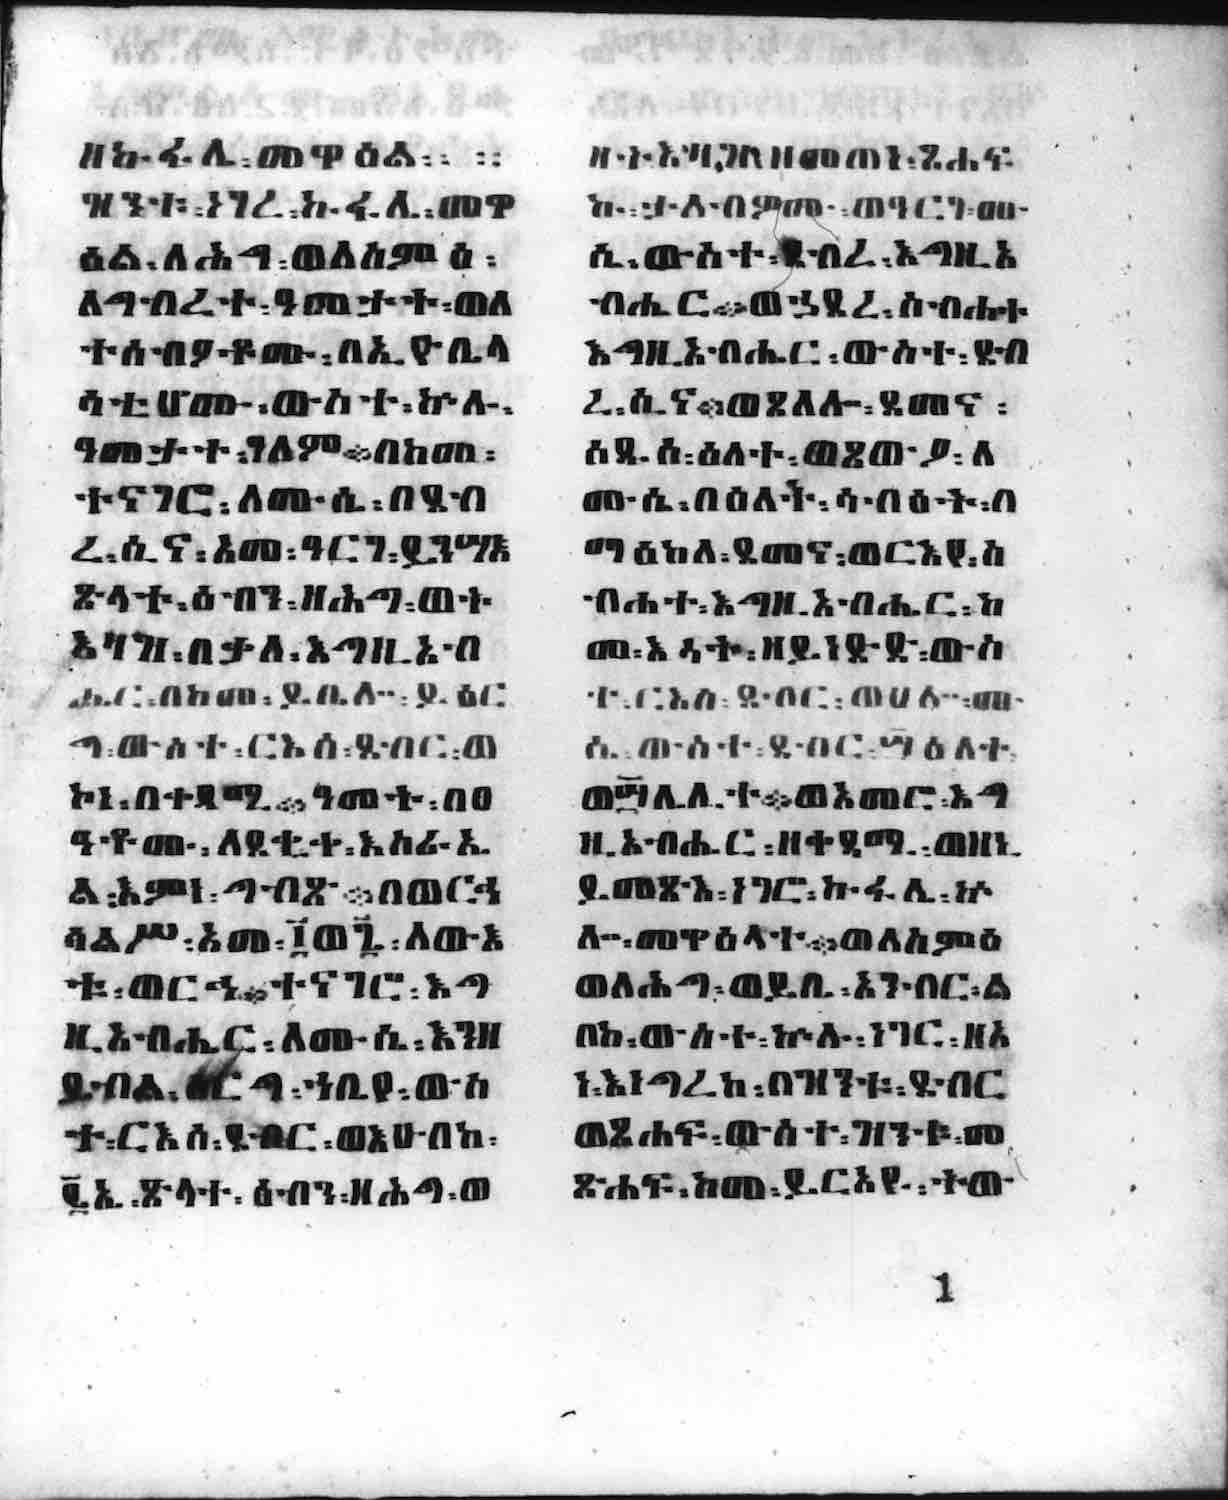 ዘኩፋሌ፡መዋዕል፡፡ ፡፡
ዝንቱ፡ነገረ፡ኩፋሌ፡መዋ
ዕል፡ለሕግ፡ወለስምዕ፡
ለግብረ፡ዓመታት፡ወለ
ተሰብዖቶሙ፡በኢዮቤላ
ሳቲሆሙ፡ውስተ፡ኵሉ፡
ዓመታተ፡ዓለም፡በከመ፡
ተናገሮ፡ለሙሴ፡በደብ
ረ፡ሲና፡አመ፡ዓርገ፡ይንሣእ
ጽላተ፡ዕብን፡ዘሕግ፡ወት
እዛዝ፡በቃለ፡እግዚአብ
ሔር፡በከመ፡ይቤሎ፡ይዕር
ግ፡ውስተ፡ርእሰ፡ደብር፡ወ
ኮነ፡በቀዳሚ፡ዓመት፡በፀ
ዓቶሙ፡ለደቂቀ፡እስራኤ
ል፡እምነ፡ግብጽ፡በወርኅ
ሳልሥ፡አመ፡፲ወ፮፡ለውእ
ቱ፡ወርኅ፡ተናገሮ፡እግ
ዚአብሔር፡ለሙሴ፡እንዘ
ይብል፡ዕርግ፡ኀቤየ፡ውስ
ተ፡ርእሰ፡ደብር፡ወእሁበከ፡
፪ኤ፡ጽላተ፡ዕብን፡ዘሕግ፡ወ
ዘትእዛዝ፡ዘመጠነ፡ጸሐፍ
ኩ፡ታለብዎሙ፡ወዓርገ፡ሙ
ሴ፡ውስተ፡ደብረ፡እግዚአ
ብሔር፡ወኃደረ፡ስብሐተ
እግዚአብሔር፡ውስተ፡ደብ
ረ፡ሲና፡ወጸለሎ፡ደመና፡
ሰዱሰ፡ዕለተ፡ወጸውዖ፡ለ
ሙሴ፡በዕለት፡ሳብዕት፡በ
ማዕከለ፡ደመና፡ወርእየ፡ስ
ብሐተ፡እግዚአብሔር፡ከ
መ፡እሳት፡ዘይነድድ፡ውስ
ተ፡ርእሰ፡ደብር፡ወሀሎ፡ሙ
ሴ፡ውስተ፡ደብር፡፵ዕለተ፡
ወ፵ሌሊተ፡ወአመሮ፡እግ
ዚአብሔር፡ዘቀዳሚ፡ወዘኒ
ይመጽእ፡ነገሮ፡ኩፋሌ፡ኵ
ሎ፡መዋዕላተ፡ወለስምዕ
ወለሕግ፡ወይቤ፡አንብር፡ል
በከ፡ውስተ፡ኵሉ፡ነገር፡ዘአ
ነ፡እነግረከ፡በዝንቱ፡ደብር
ወጸሐፍ፡ውስተ፡ዝንቱ፡መ
ጽሐፍ፡ከመ፡ይርአዩ፡ትው
1